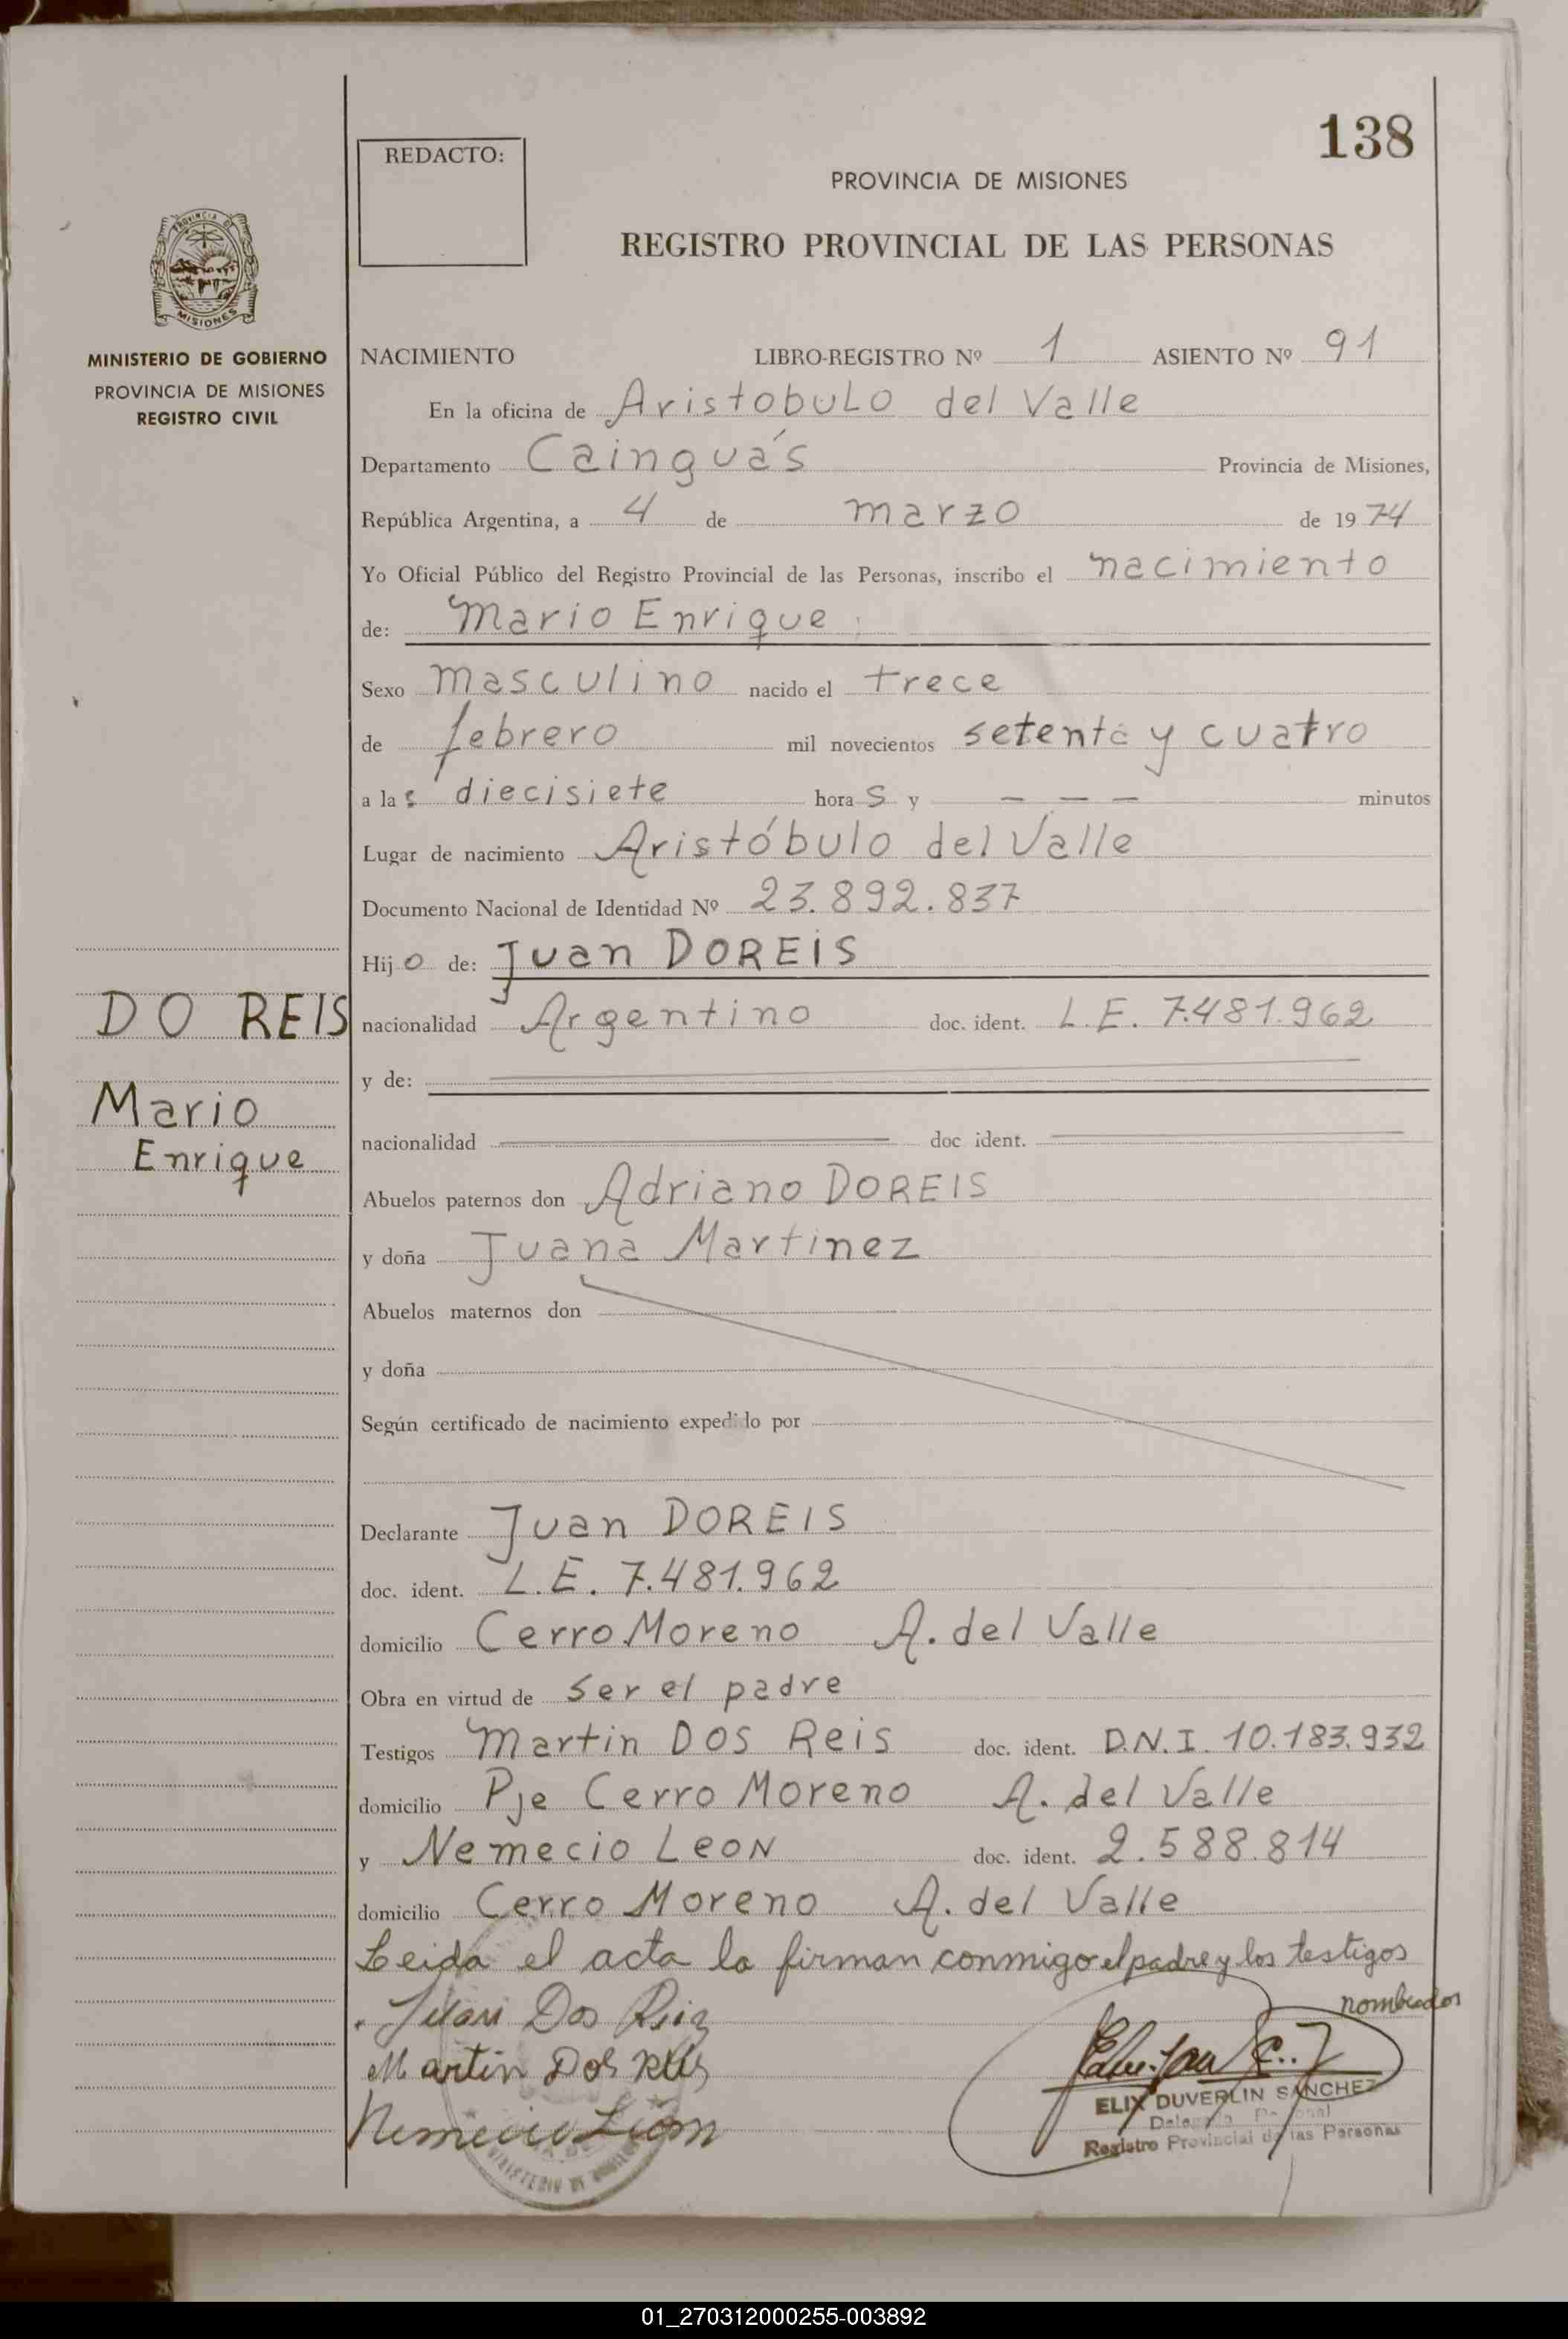 138
REDACTO:
PROVINCIA DE MISIONES
REGISTRO PROVINCIAL DE LAS PERSONAS
PROVINCIA DE
MISIONES
MINISTERIO DE GOBIERNO
PROVINCIA DE MISIONES
REGISTRO CIVIL
NACIMIENTO LIBRO-REGISTRO Nº 1 ASIENTO Nº 91
En la oficina de Aristobulo del Valle
Departamento Cainguás Provincia de Misiones,
República Argentina, a 4 de marzo de 1974
Yo Oficial Público del Registro Provincial de las Personas, inscribo el nacimiento
de: Mario Enrique
Sexo masculino nacido el trece
de febrero mil novecientos setenta y cuatro
a las diecisiete horas y — — — minutos
Lugar de nacimiento Aristóbulo del Valle
Documento Nacional de Identidad Nº 23.892.837
Hijo de: Juan DOREIS
DO REIS
nacionalidad Argentino doc. ident. L.E. 7.481.962
y de:
Mario
Enrique
nacionalidad doc ident.
Abuelos paternos don Adriano DOREIS
y doña Juana Martinez
Abuelos maternos don
y doña
Según certificado de nacimiento expedido por
Declarante Juan DOREIS
doc. ident. L.E. 7.481.962
domicilio Cerro Moreno A. del Valle
Obra en virtud de ser el padre
Testigos Martin DOS Reis doc. ident. D.N.I. 10.183.932
domicilio Pje Cerro Moreno A. del Valle
y Nemecio LEON doc. ident. 2.588.814
domicilio Cerro Moreno A. del Valle
Leida el acta la firman conmigo el padre y los testigos
nombrados
Juan Dos Reis
Martin Dos Reis
Nemecio Leon
ELIX DUVERLIN SANCHEZ
Registro Provincial de las Personas
01_270312000255-003892